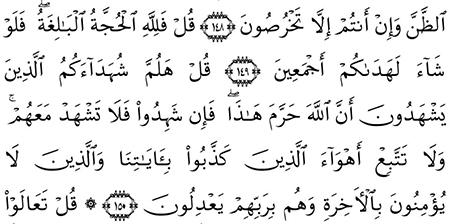 ٱلظَّنَّ وَإِنۡ أَنتُمۡ إِلَّا تَخۡرُصُونَ ١٤٨ قُلۡ فَلِلَّهِ ٱلۡحُجَّةُ ٱلۡبَٰلِغَةُۖ فَلَوۡ
شَآءَ لَهَدَىٰكُمۡ أَجۡمَعِينَ ١٤٩ قُلۡ هَلُمَّ شُهَدَآءَكُمُ ٱلَّذِينَ
يَشۡهَدُونَ أَنَّ ٱللَّهَ حَرَّمَ هَٰذَاۖ فَإِن شَهِدُواْ فَلَا تَشۡهَدۡ مَعَهُمۡۚ
وَلَا تَتَّبِعۡ أَهۡوَآءَ ٱلَّذِينَ كَذَّبُواْ بِـَٔايَٰتِنَا وَٱلَّذِينَ لَا
يُؤۡمِنُونَ بِٱلۡأٓخِرَةِ وَهُم بِرَبِّهِمۡ يَعۡدِلُونَ ١٥٠ ۞ قُلۡ تَعَالَوۡاْ